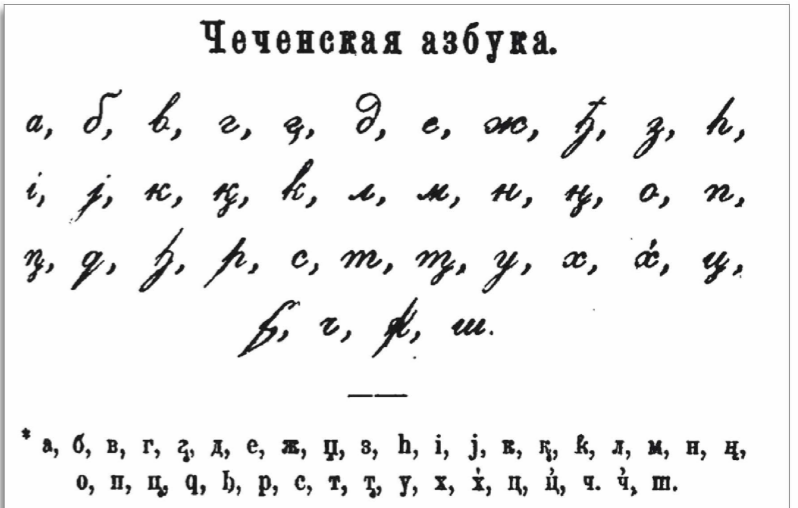 Чеченская азбука.
а, б, в, г, г̧, д, е, ж, ђ, з, һ,
і, ј, к, қ, k, л, м, н, ң, о, п,
ҧ, q, ꚕ, р, с, т, ҭ, у, х, х̓, ц,
ч, ш.
* а, б, в, г, г̧, д, е, ж, џ, з, һ, і, ј, к, қ, k̓, л, м, н, ң,
о, п, ҧ, q, ꚕ, р, с, т, ҭ, у, х, х̓, ц, ц̓, ч. ч̓, ш.